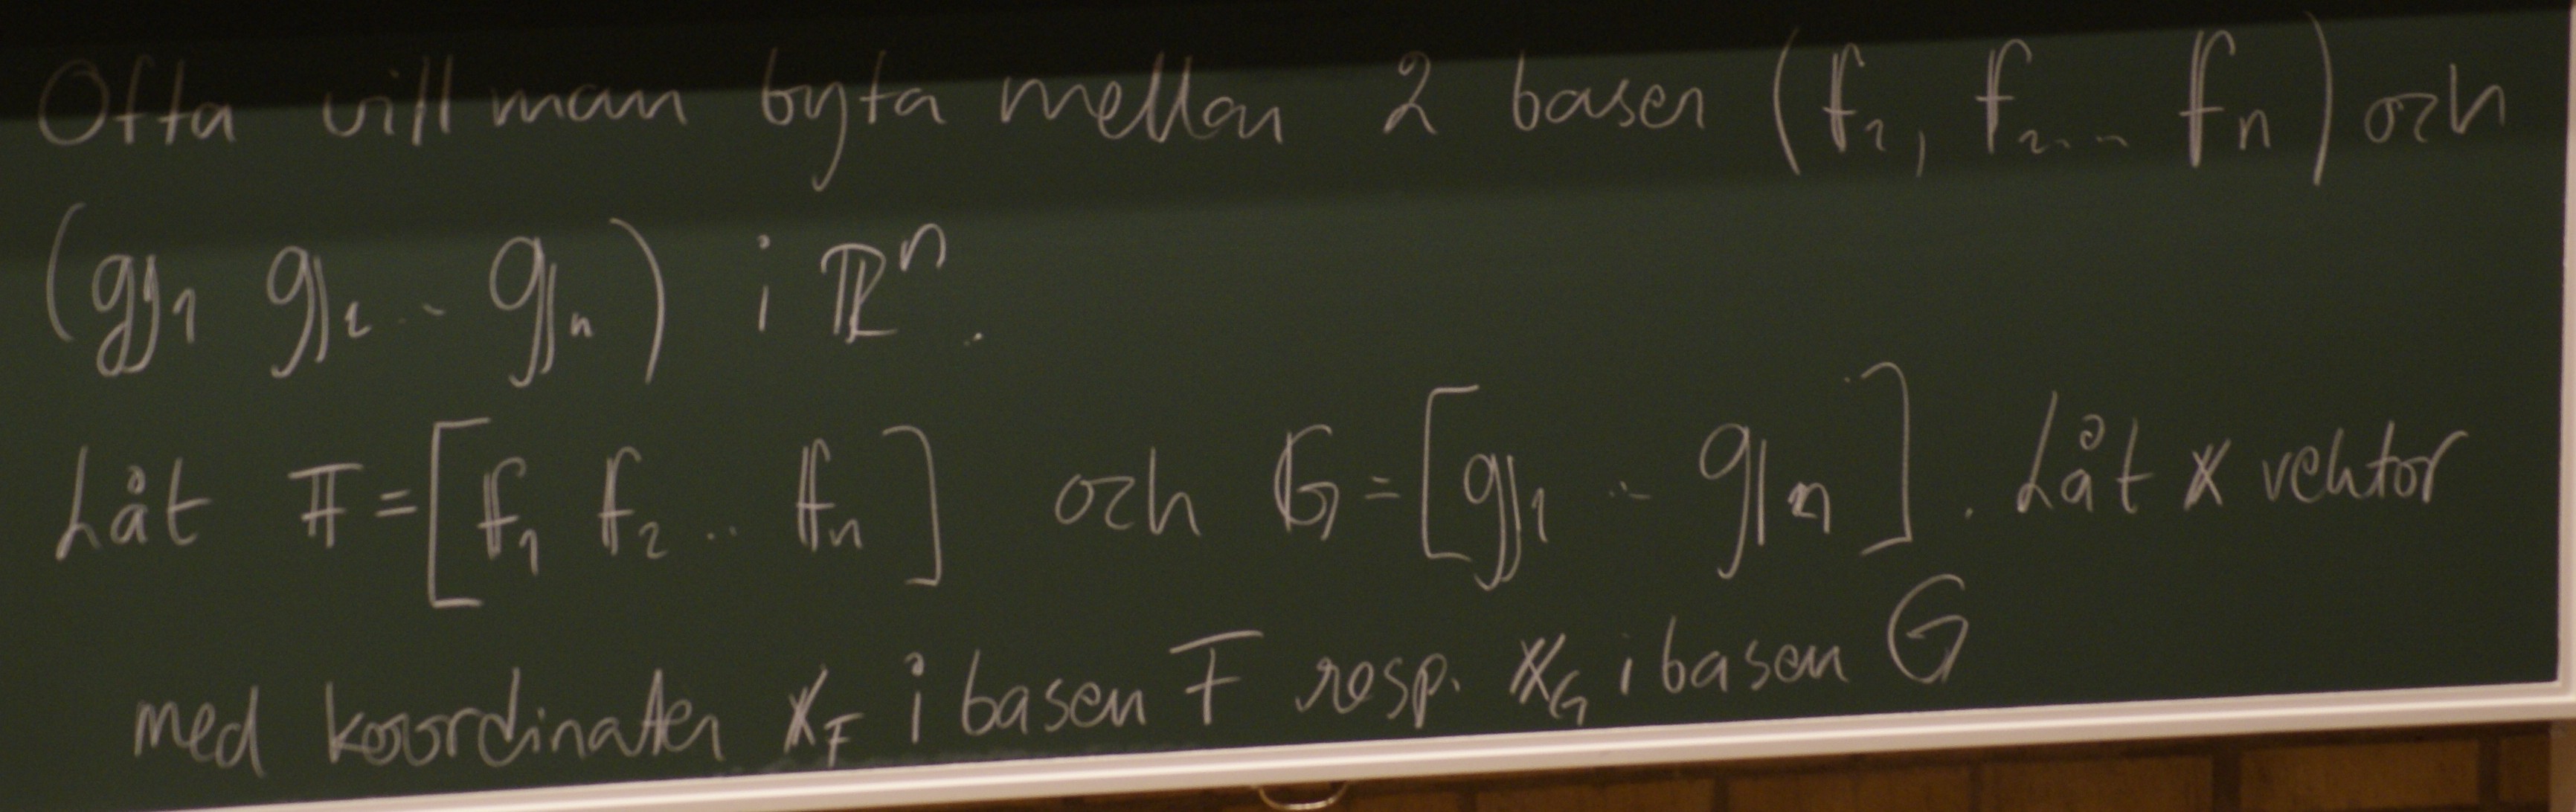 Ofta vill man byta mellan 2 baser (f₁, f₂... fₙ) och
(g₁ g₂ ... gₙ) i ℝⁿ.
Låt F = [f₁ f₂ .. fₙ] och G = [g₁ ... gₙ]. Låt x vektor
med koordinater x_F i basen F resp. x_G i basen G